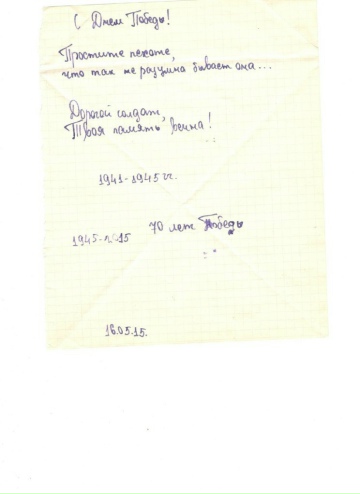 С Днем Победы!
Простите пехоте,
что так неразумна бывает она...
Дорогой солдат,
Твоя память вечна!
1941-1945 гг.
70 лет Победы
1945-2015
16.05.15.